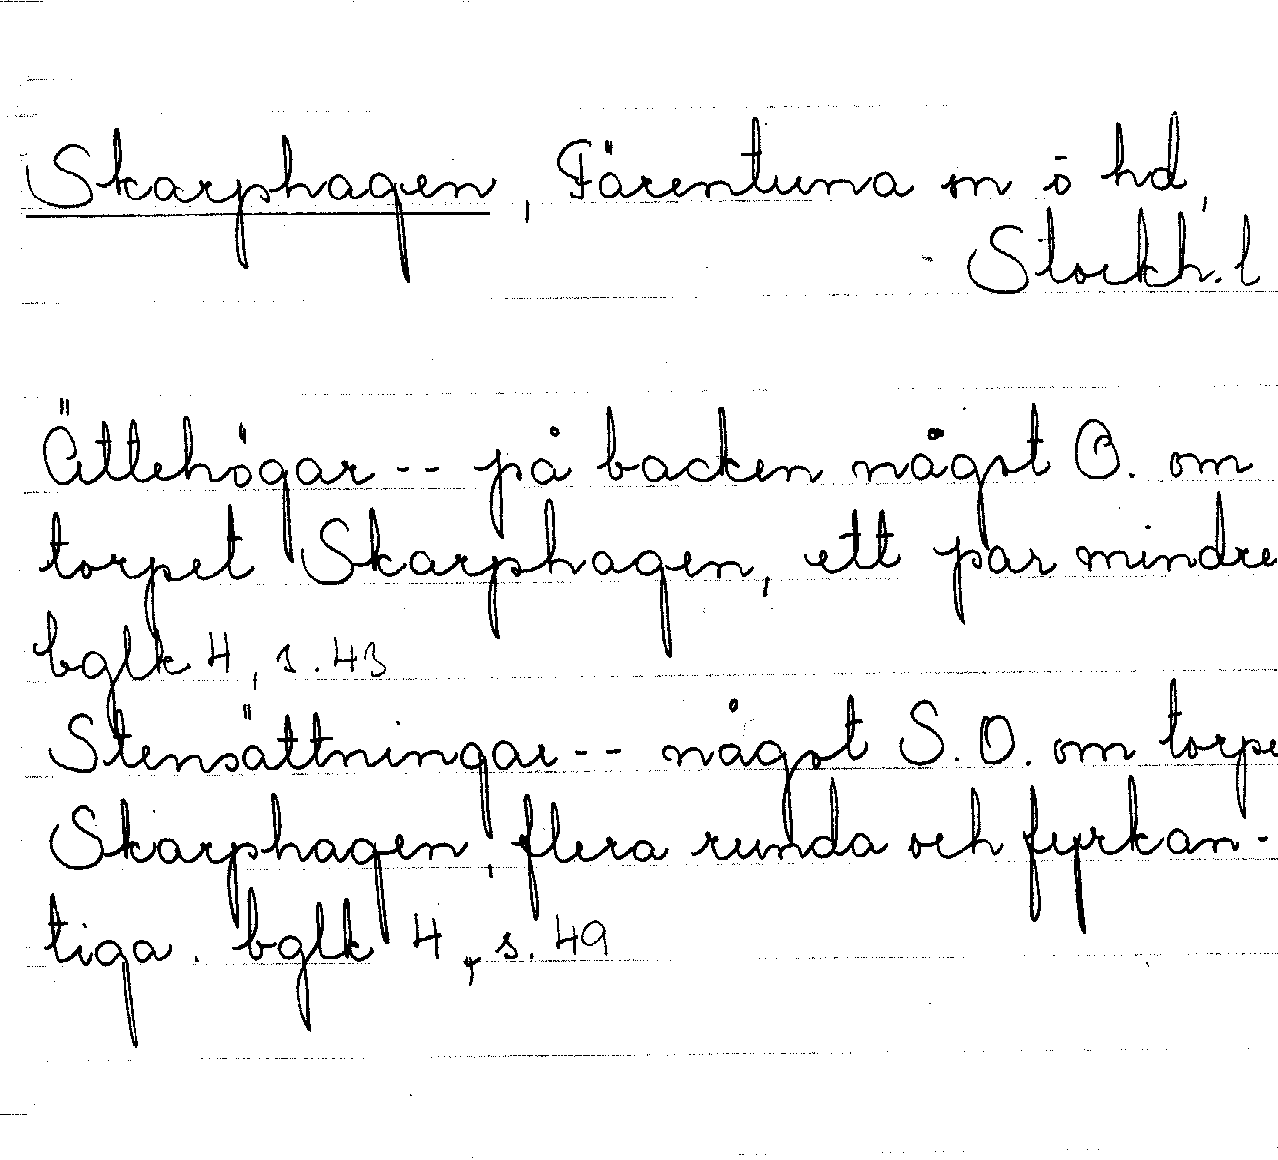 Skarphagen, Färentuna sn o hd,
Stockh. l
Ättehögar -- på backen något O. om
torpet Skarphagen, ett par mindre
bglk 4, s. 43
Stensättningar -- något S. O. om torpe
Skarphagen, flera runda och fyrkan-
tiga. bglk 4, s. 49